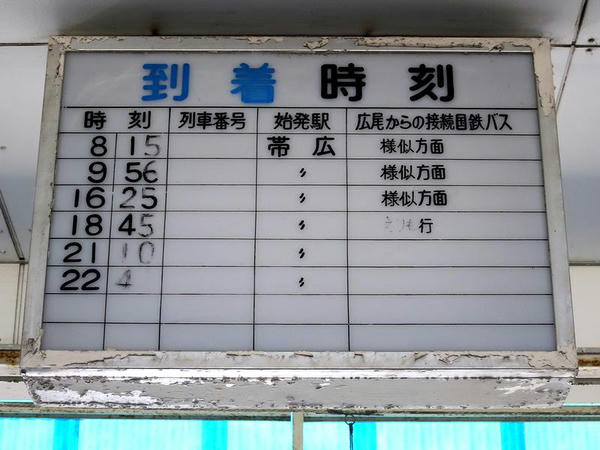 到着時刻
時刻 列車番号 始発駅 広尾からの接続国鉄バス
8 15 帯広 様似方面
9 56 〃 様似方面
16 25 〃 様似方面
18 45 〃 えりも行
21 10 〃
22 4 〃